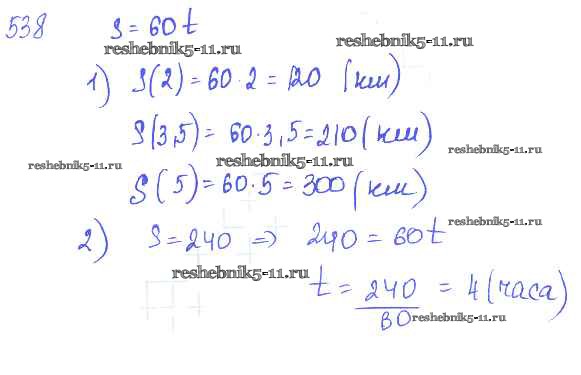 538 S = 60t
reshebnik5-11.ru reshebnik5-11.ru
1) S(2) = 60 · 2 = 120 (км)
S(3,5) = 60 · 3,5 = 210 (км)
reshebnik5-11.ru
reshebnik5-11.ru reshebnik5-11.ru
S(5) = 60 · 5 = 300 (км)
reshebnik5-11.ru
2) S = 240 ⇒ 240 = 60t
reshebnik5-11.ru
t = 240/60 = 4 (часа)
reshebnik5-11.ru